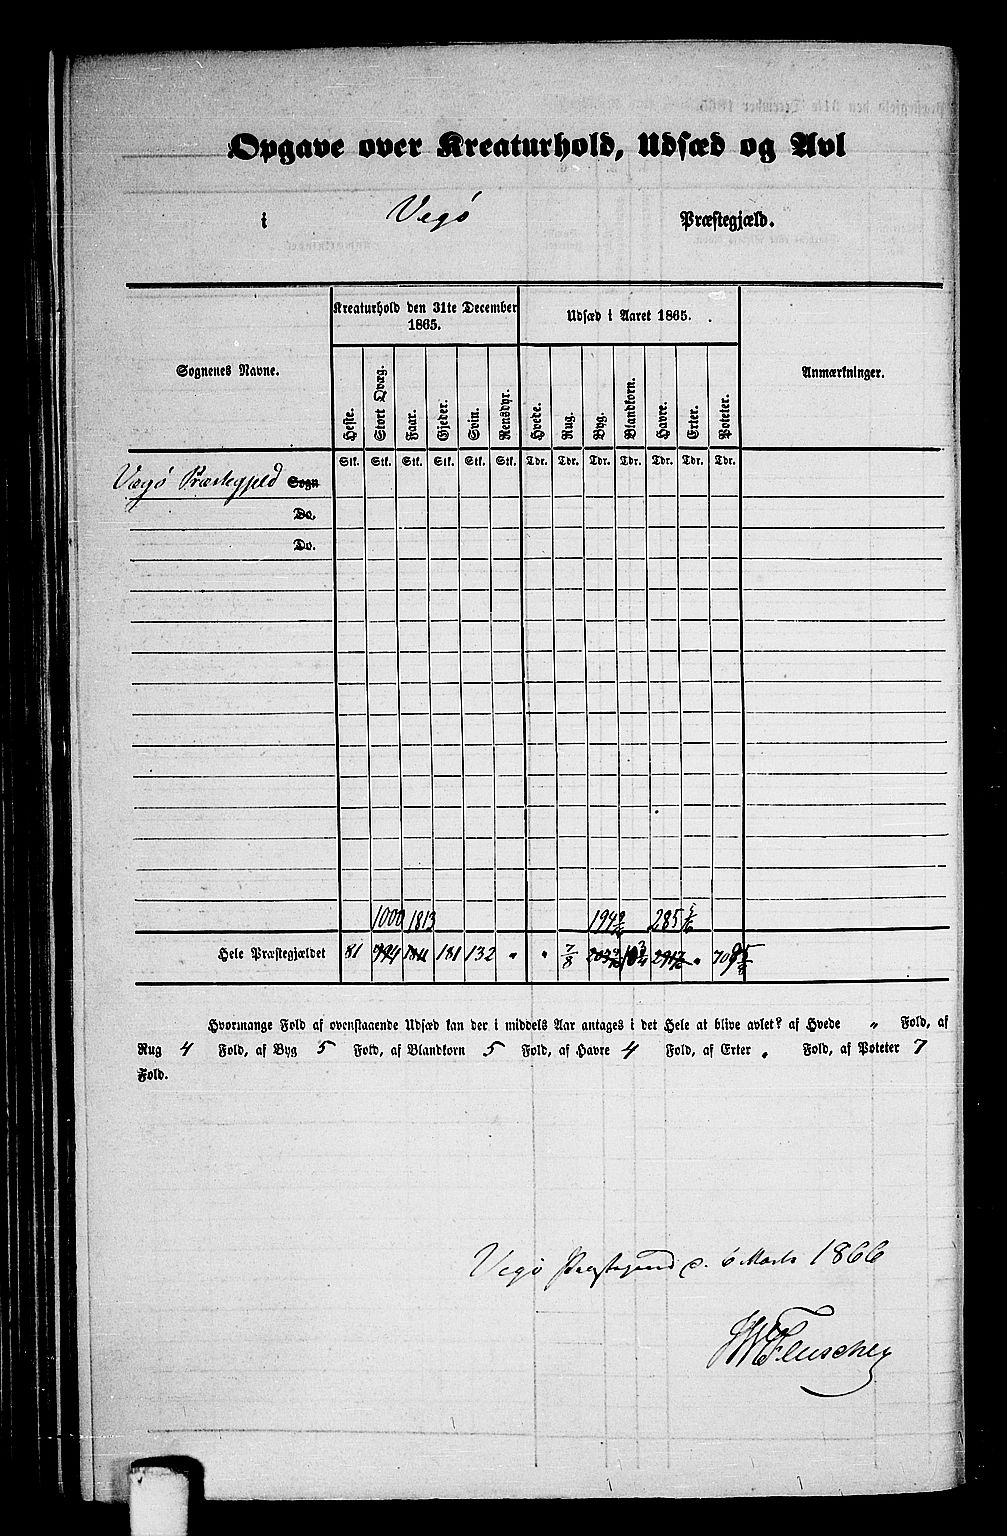 Opgave over Kreaturhold, Udsæd og Avl
i Vegø Præstegjæld.
Sognenes Navne.
Kreaturhold den 31te December 1865.
Udsæd i Aaret 1865.
Anmærkninger.
Heste. Stort Qvæg. Faar. Gjeder. Svin. Rensdyr. Hvede. Rug. Byg. Blandkorn. Havre. Erter. Poteter.
Stk. Stk. Stk. Stk. Stk. Stk. Tdr. Tdr. Tdr. Tdr. Tdr. Tdr. Tdr.
Vegø Præstegjeld Sogn
Do.
Do.
1000 1813 194 285
Hele Præstegjældet 81 994 181 132 " " 7/8 "
Hvormange Fold af ovenstaaende Udsæd kan der i middels Aar antages i det Hele at blive avlet? af Hvede " Fold, af
Rug 4 Fold, af Byg 5 Fold, af Blandkorn 5 Fold, af Havre 4 Fold, af Erter " Fold, af Poteter 7
Fold.
Vegø Præstegaard d. 6 Marts 1866